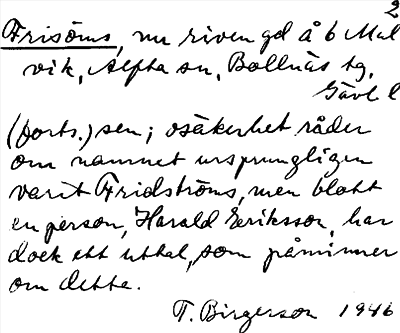 2
Frisöms, nu riven gd å 6 Mal
vik, Alfta sn, Bollnäs tg,
Gävl. l
(forts.) sen; osäkerhet råder
om namnet ursprungligen
varit Fridströms, men blott
en person, Harald Eriksson, har
dock ett uttal, som påminner
om detta.
T. Birgerson 1946